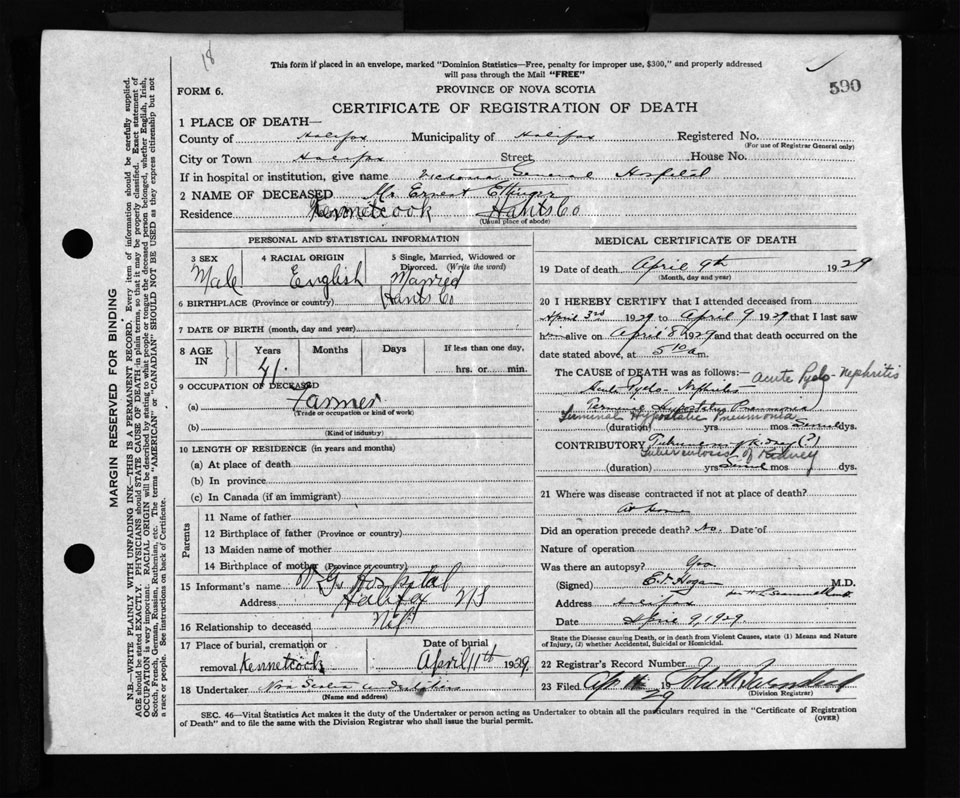 18
This form if placed in an envelope, marked "Dominion Statistics—Free, penalty for improper use, $300," and properly addressed
will pass through the Mail "FREE"
590
FORM 6.
PROVINCE OF NOVA SCOTIA
CERTIFICATE OF REGISTRATION OF DEATH
1 PLACE OF DEATH—
County of Halifax Municipality of Halifax Registered No.
(For use of Registrar General only)
City or Town Halifax Street House No.
If in hospital or institution, give name Victoria General Hospital
2 NAME OF DECEASED Mr Ernest Ettinger
Residence Kennetcook Hants Co
(Usual place of abode)
PERSONAL AND STATISTICAL INFORMATION
3 SEX 4 RACIAL ORIGIN 5 Single, Married, Widowed or
Divorced. (Write the word)
Male English Married
6 BIRTHPLACE (Province or country) Hants Co
7 DATE OF BIRTH (month, day and year)
8 AGE IN Years Months Days If less than one day,
41 hrs. or min.
9 OCCUPATION OF DECEASED
(a) Farmer
(Trade or occupation or kind of work)
(b)
(Kind of industry)
10 LENGTH OF RESIDENCE (in years and months)
(a) At place of death
(b) In province
(c) In Canada (if an immigrant)
Parents
11 Name of father
12 Birthplace of father (Province or country)
13 Maiden name of mother
14 Birthplace of mother (Province or country)
15 Informant's name V G Hospital
Address Halifax NS
16 Relationship to deceased
17 Place of burial, cremation or Date of burial
removal Kennetcook April 11th 1929
18 Undertaker Nova Scotia
(Name and address)
MEDICAL CERTIFICATE OF DEATH
19 Date of death April 9th 1929
(Month, day and year)
20 I HEREBY CERTIFY that I attended deceased from
April 3rd 1929 to April 9 1929 that I last saw
him alive on April 8 1929 and that death occurred on the
date stated above, at 5 10 a m.
The CAUSE OF DEATH was as follows:— Acute Pyelo-Nephritis
Acute Pyelo-Nephritis
Terminal Hypostatic Pneumonia
Terminal Hypostatic Pneumonia
(duration) yrs mos Several dys.
CONTRIBUTORY Tuberculosis of Kidney (?)
Tuberculosis of Kidney
(duration) yrs Several mos dys.
21 Where was disease contracted if not at place of death?
at Home
Did an operation precede death? No. Date of
Nature of operation
Was there an autopsy? Yes
(Signed) Hogan M.D.
Address Halifax
Date April 9, 1929.
State the Disease causing Death, or in death from Violent Causes, state (1) Means and Nature
of Injury, (2) whether Accidental, Suicidal or Homicidal.
22 Registrar's Record Number
23 Filed Apr 11 1929
(Division Registrar)
SEC. 46—Vital Statistics Act makes it the duty of the Undertaker or person acting as Undertaker to obtain all the particulars required in the "Certificate of Registration
of Death" and to file the same with the Division Registrar who shall issue the burial permit. (OVER)
MARGIN RESERVED FOR BINDING
N.B.—WRITE PLAINLY WITH UNFADING INK—THIS IS A PERMANENT RECORD. Every item of information should be carefully supplied.
AGE should be stated EXACTLY. PHYSICIANS should STATE CAUSE OF DEATH in plain terms, so that it may be properly classified. Exact statement of
OCCUPATION is very important. RACIAL ORIGIN will be described by stating to what people or tongue the deceased person belonged, whether English, Irish,
Scotch, French, German, Russian, Ruthenian, etc. The terms "AMERICAN" or "CANADIAN" SHOULD NOT BE USED as they express citizenship but not
a race or people. See instructions on back of Certificate.